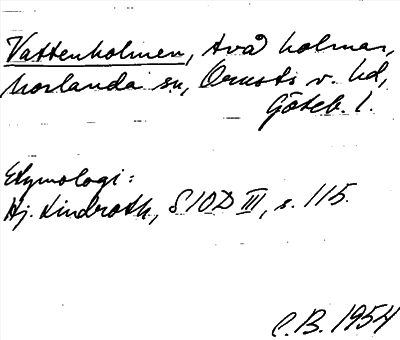 Vattenholmen, två holmar,
Morlanda sn, Orusts v. hd,
Göteb. l.
Etymologi:
Hj. Lindroth, SIOD III, s. 115.
C.B. 1954